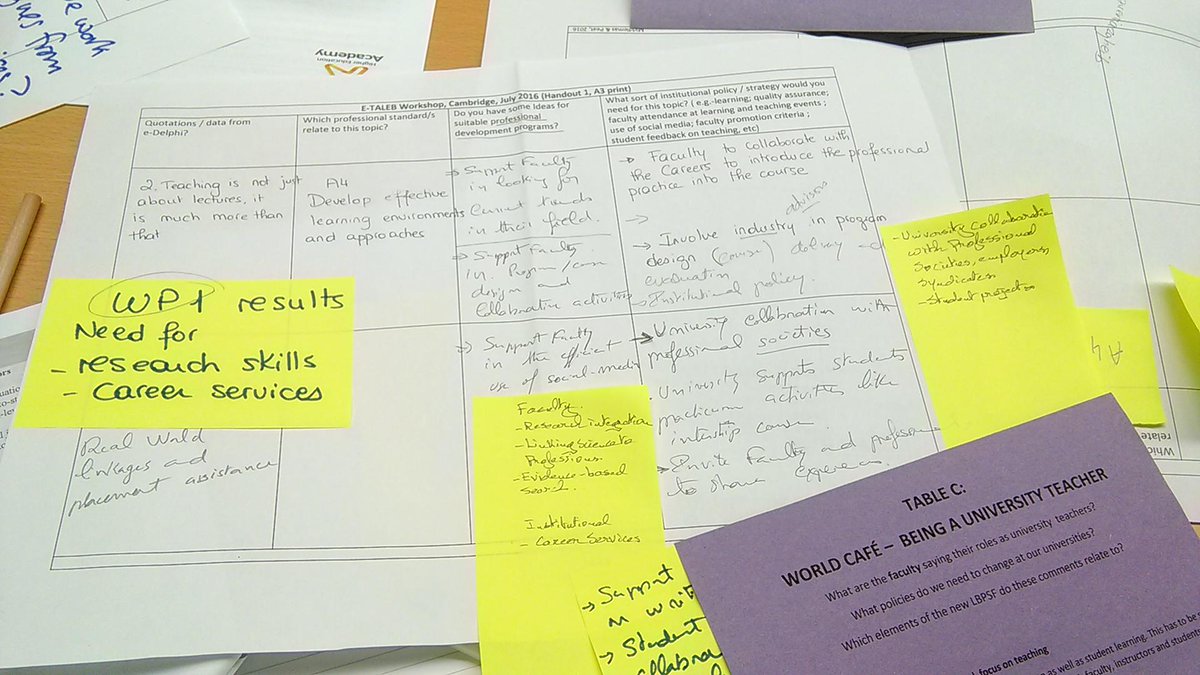 e work
ues from
Higher Education
Academy
E-TALEB Workshop, Cambridge, July 2016 (Handout 1, A3 print)
Quotations / data from
e-Delphi?
Which professional standard/s
relate to this topic?
Do you have some ideas for
suitable professional
development programs?
What sort of institutional policy / strategy would you
need for this topic? ( e.g.-learning; quality assurance;
faculty attendance at learning and teaching events ;
use of social media; faculty promotion criteria ;
student feedback on teaching, etc)
2. Teaching is not just
about lectures, it
is much more than
that
A4
Develop effective
learning environments
and approaches
→ Support Faculty
in looking for
Current trends
in their field.
→ Support Faculty
in Program/course
design and
Collaborative activities
→ Support Faculty
in the efficient
use of social-media
→ Faculty to collaborate with
the Careers to introduce the professional
practice into the course
→
advisors
→ Involve industry in program
design (course) delivery and
evaluation
Institutional policy.
→ University collaboration with
professional societies
University supports students
practicum activities like
internship course
→ Invite Faculty and
to share experiences
WP1 results
Need for
- research skills
- Career services
Real World
linkages and
placement assistance
Faculty
- Research integration
- Linking science to
Professions.
- Evidence-based
search.
Institutional
- Career Services
→ Support
→ Student
- University collaboration
with Professional
Societies, employers,
syndicates
- Student projects
A4
Which
relate
TABLE C:
WORLD CAFÉ – BEING A UNIVERSITY TEACHER
What are the faculty saying their roles as university teachers?
What policies do we need to change at our universities?
Which elements of the new LBPSF do these comments relate to?
focus on teaching
as well as student learning. This has to be
faculty, instructors and students